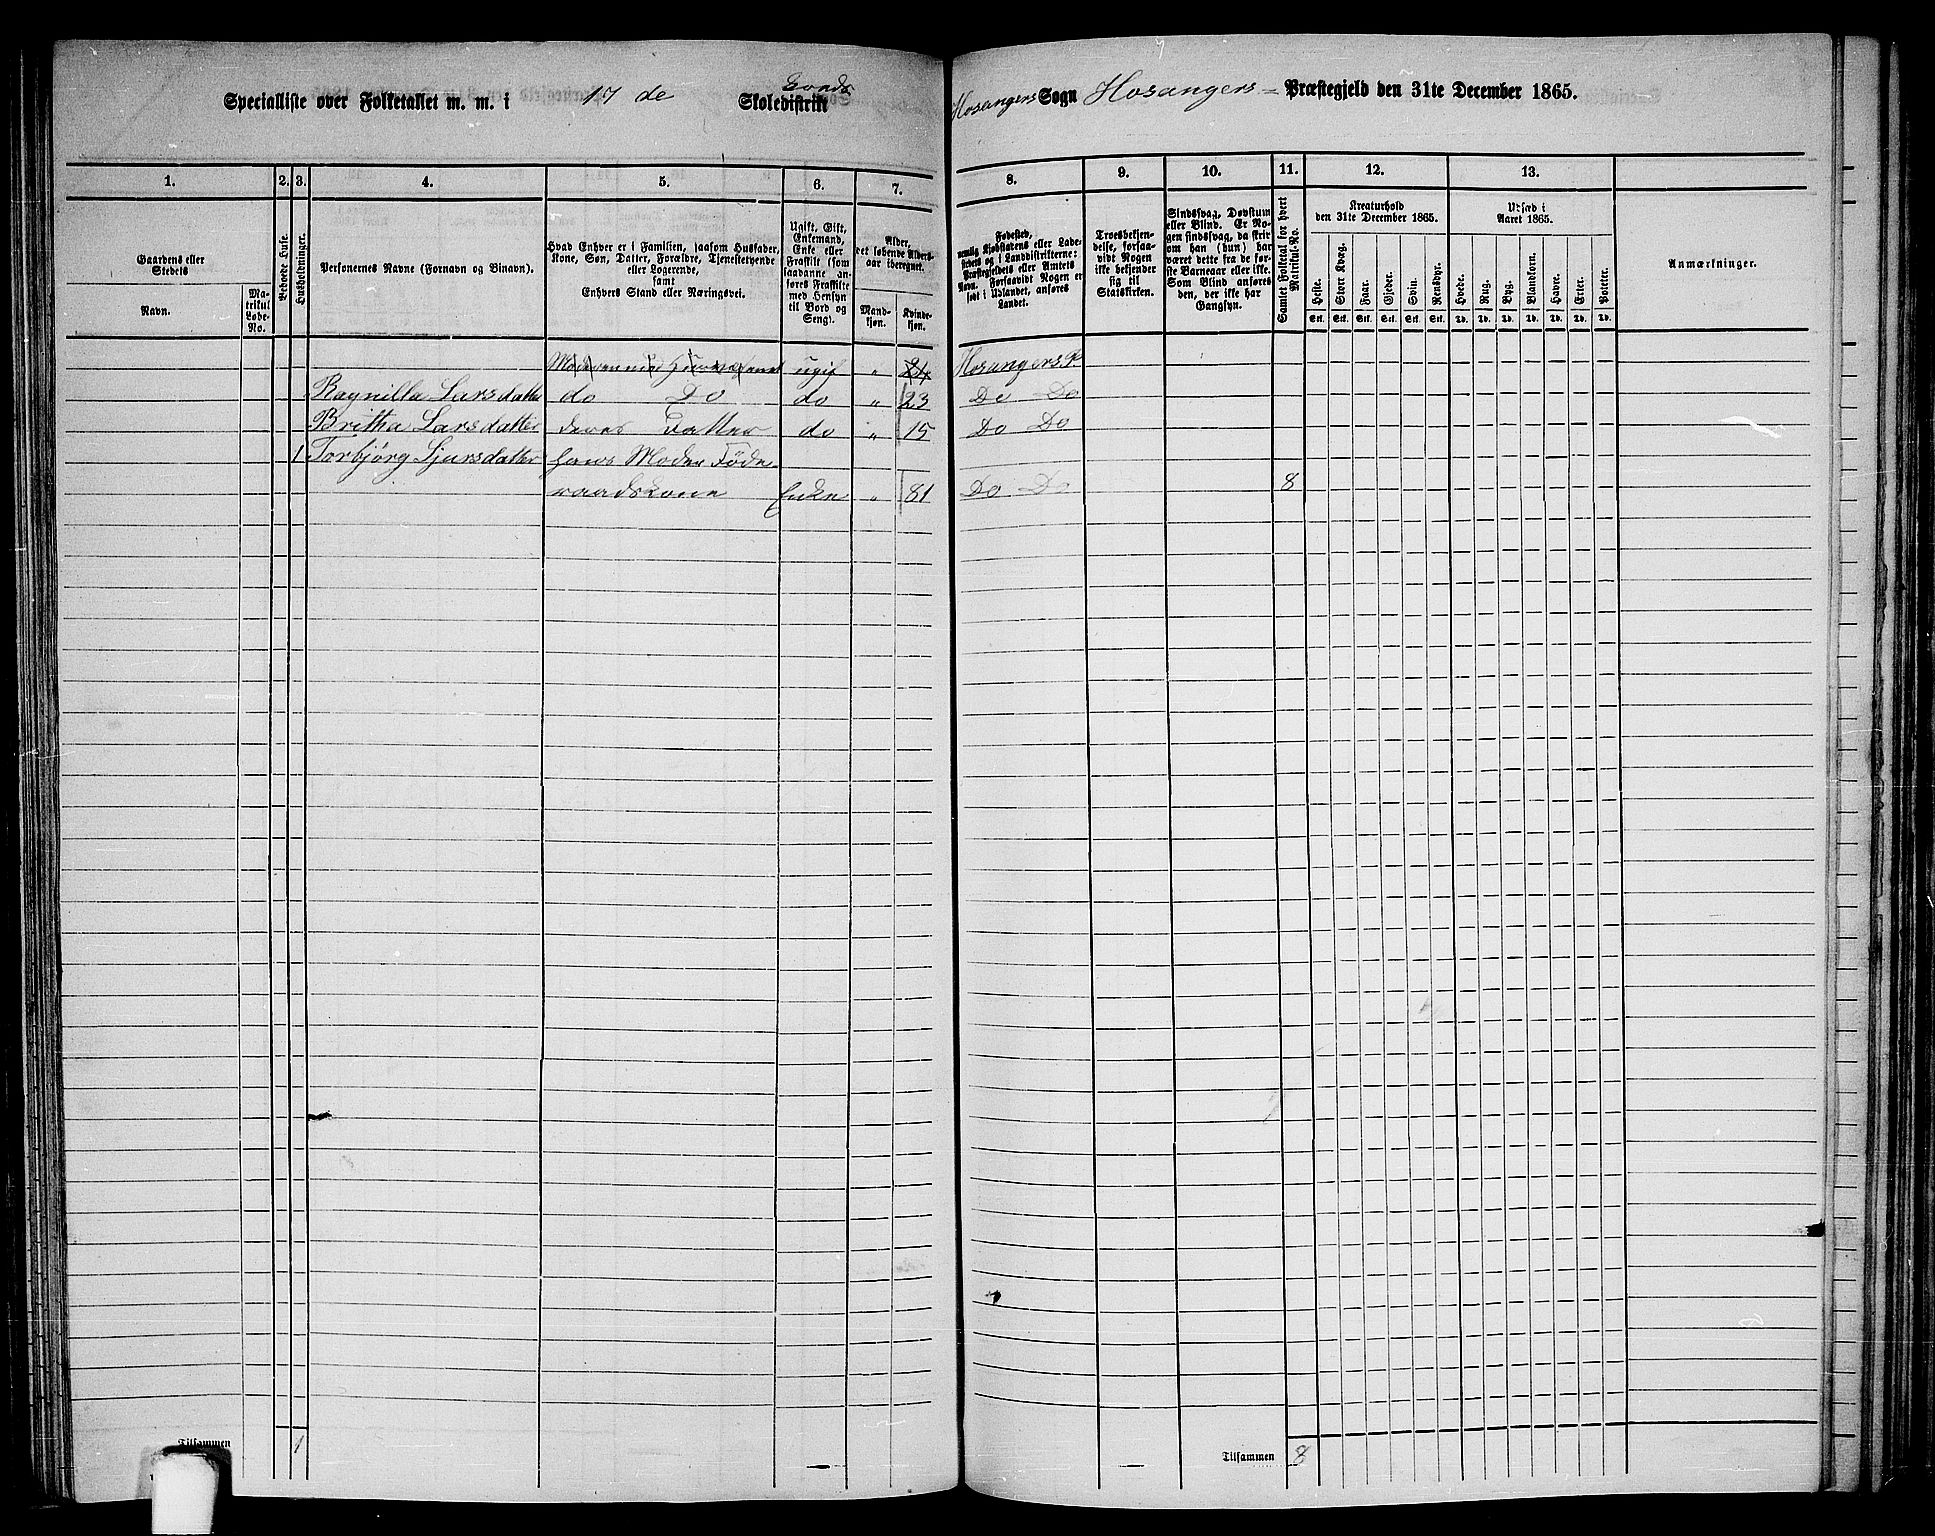 Specialliste over Folketallet m. m. i 17 de Skoledistrikt Hosangers Sogn Hosangers Præstegjeld den 31te December 1865.
1. 2. 3. 4. 5. 6. 7. 8. 9. 10. 11. 12. 13.
Gaardens eller Stedets
Navn.
Matrikul Løbe-No.
Beboede Huse.
Husholdninger.
Personernes Navne (Fornavn og Binavn).
Hvad Enhver er i Familien, saasom Husfader,
Kone, Søn, Datter, Forældre, Tjenestetyende
eller Logerende,
samt
Enhvers Stand eller Næringsvei.
Ugift, Gift,
Enkemand,
Enke eller
Fraskilt (som
saadanne anføres
Fraskilte
med Hensyn
til Bord og
Seng).
Alder,
det løbende Alders-
aar iberegnet.
Mand-
kjøn.
Kvinde-
kjøn.
Fødested,
nemlig Kjøbstadens eller Lade-
stedets og i Landdistrikterne:
Præstegjeldets eller Amtets
Navn. Forsaavidt Nogen er
født i Udlandet, anføres
Landet.
Troesbekjen-
delse, forsaa-
vidt Nogen
ikke bekjender
sig til
Statskirken.
Sindssvag, Døvstum
eller Blind. Er No-
gen sindssvag, da skriv
om han (hun) har
været dette fra de før-
ste Barneaar eller ei.
Som Blind anføres
den, der ikke har
Gangsyn.
Samlet Folketal for hvert Matrikul-No.
Kreaturhold
den 31te December 1865.
Heste. Stort Kvæg. Faar. Gjeder. Sviin. Rensdyr.
Stk. Stk. Stk. Stk. Stk. Stk.
Udsæd i
Aaret 1865.
Hvede. Rug. Byg. Blandkorn. Havre. Erter. Poteter.
Td. Td. Td. Td. Td. Td. Td.
Anmærkninger.
ugif " 24 Hosangers P
Ragnilla Larsdatter do Do do " 23 Do Do
Britha Larsdatter deres Datter do " 15 Do Do
1 Torbjørg Sjursdatter hans Moder Føde-
raadskone Enke " 81 Do Do 8
Tilsammen 1 Tilsammen 8